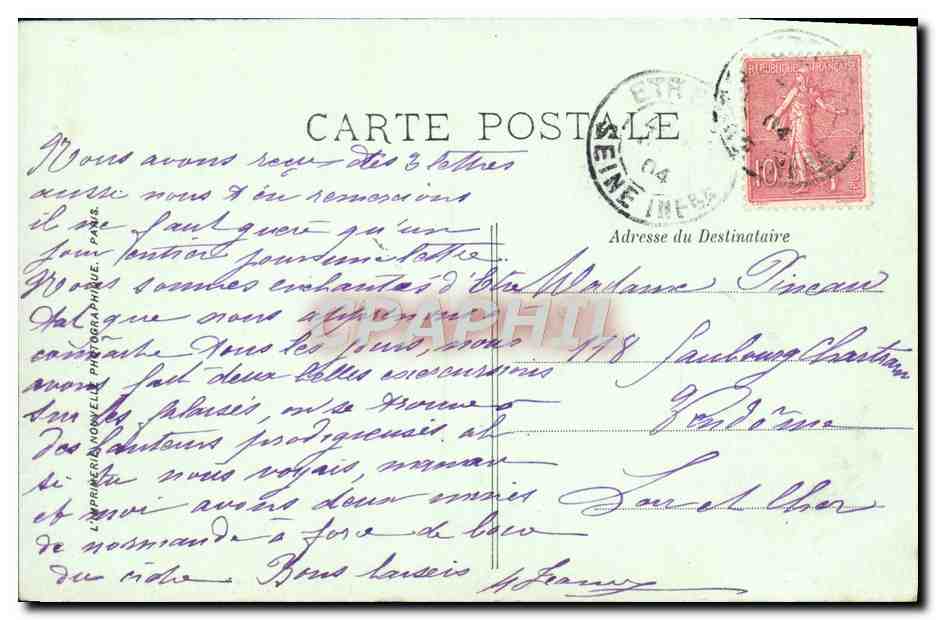 CARTE POSTALE
REPUBLIQUE FRANÇAISE
10
SEINE INFRE
04
04
Adresse du Destinataire
Nous avons reçu tes 3 lettres
aussi nous t'en remercions
il ne faut guère qu'un
jour entier pour une lettre.
Nous sommes enchantés d'Etretat que nous
tous les jours, nous
avons fait deux belles excursions
sur les falaises, on se trouve à
des hauteurs prodigieuses. ah
si tu nous voyais, maman
et moi avons deux mines
de normande à force de boire
du cidre Bons baisers
Jeanne
Madame Pineau
118 faubourg Chartrain
Vendôme
Loir et Cher
L'IMPRIMERIE NOUVELLE PHOTOGRAPHIQUE. PARIS.
CPAPHIL